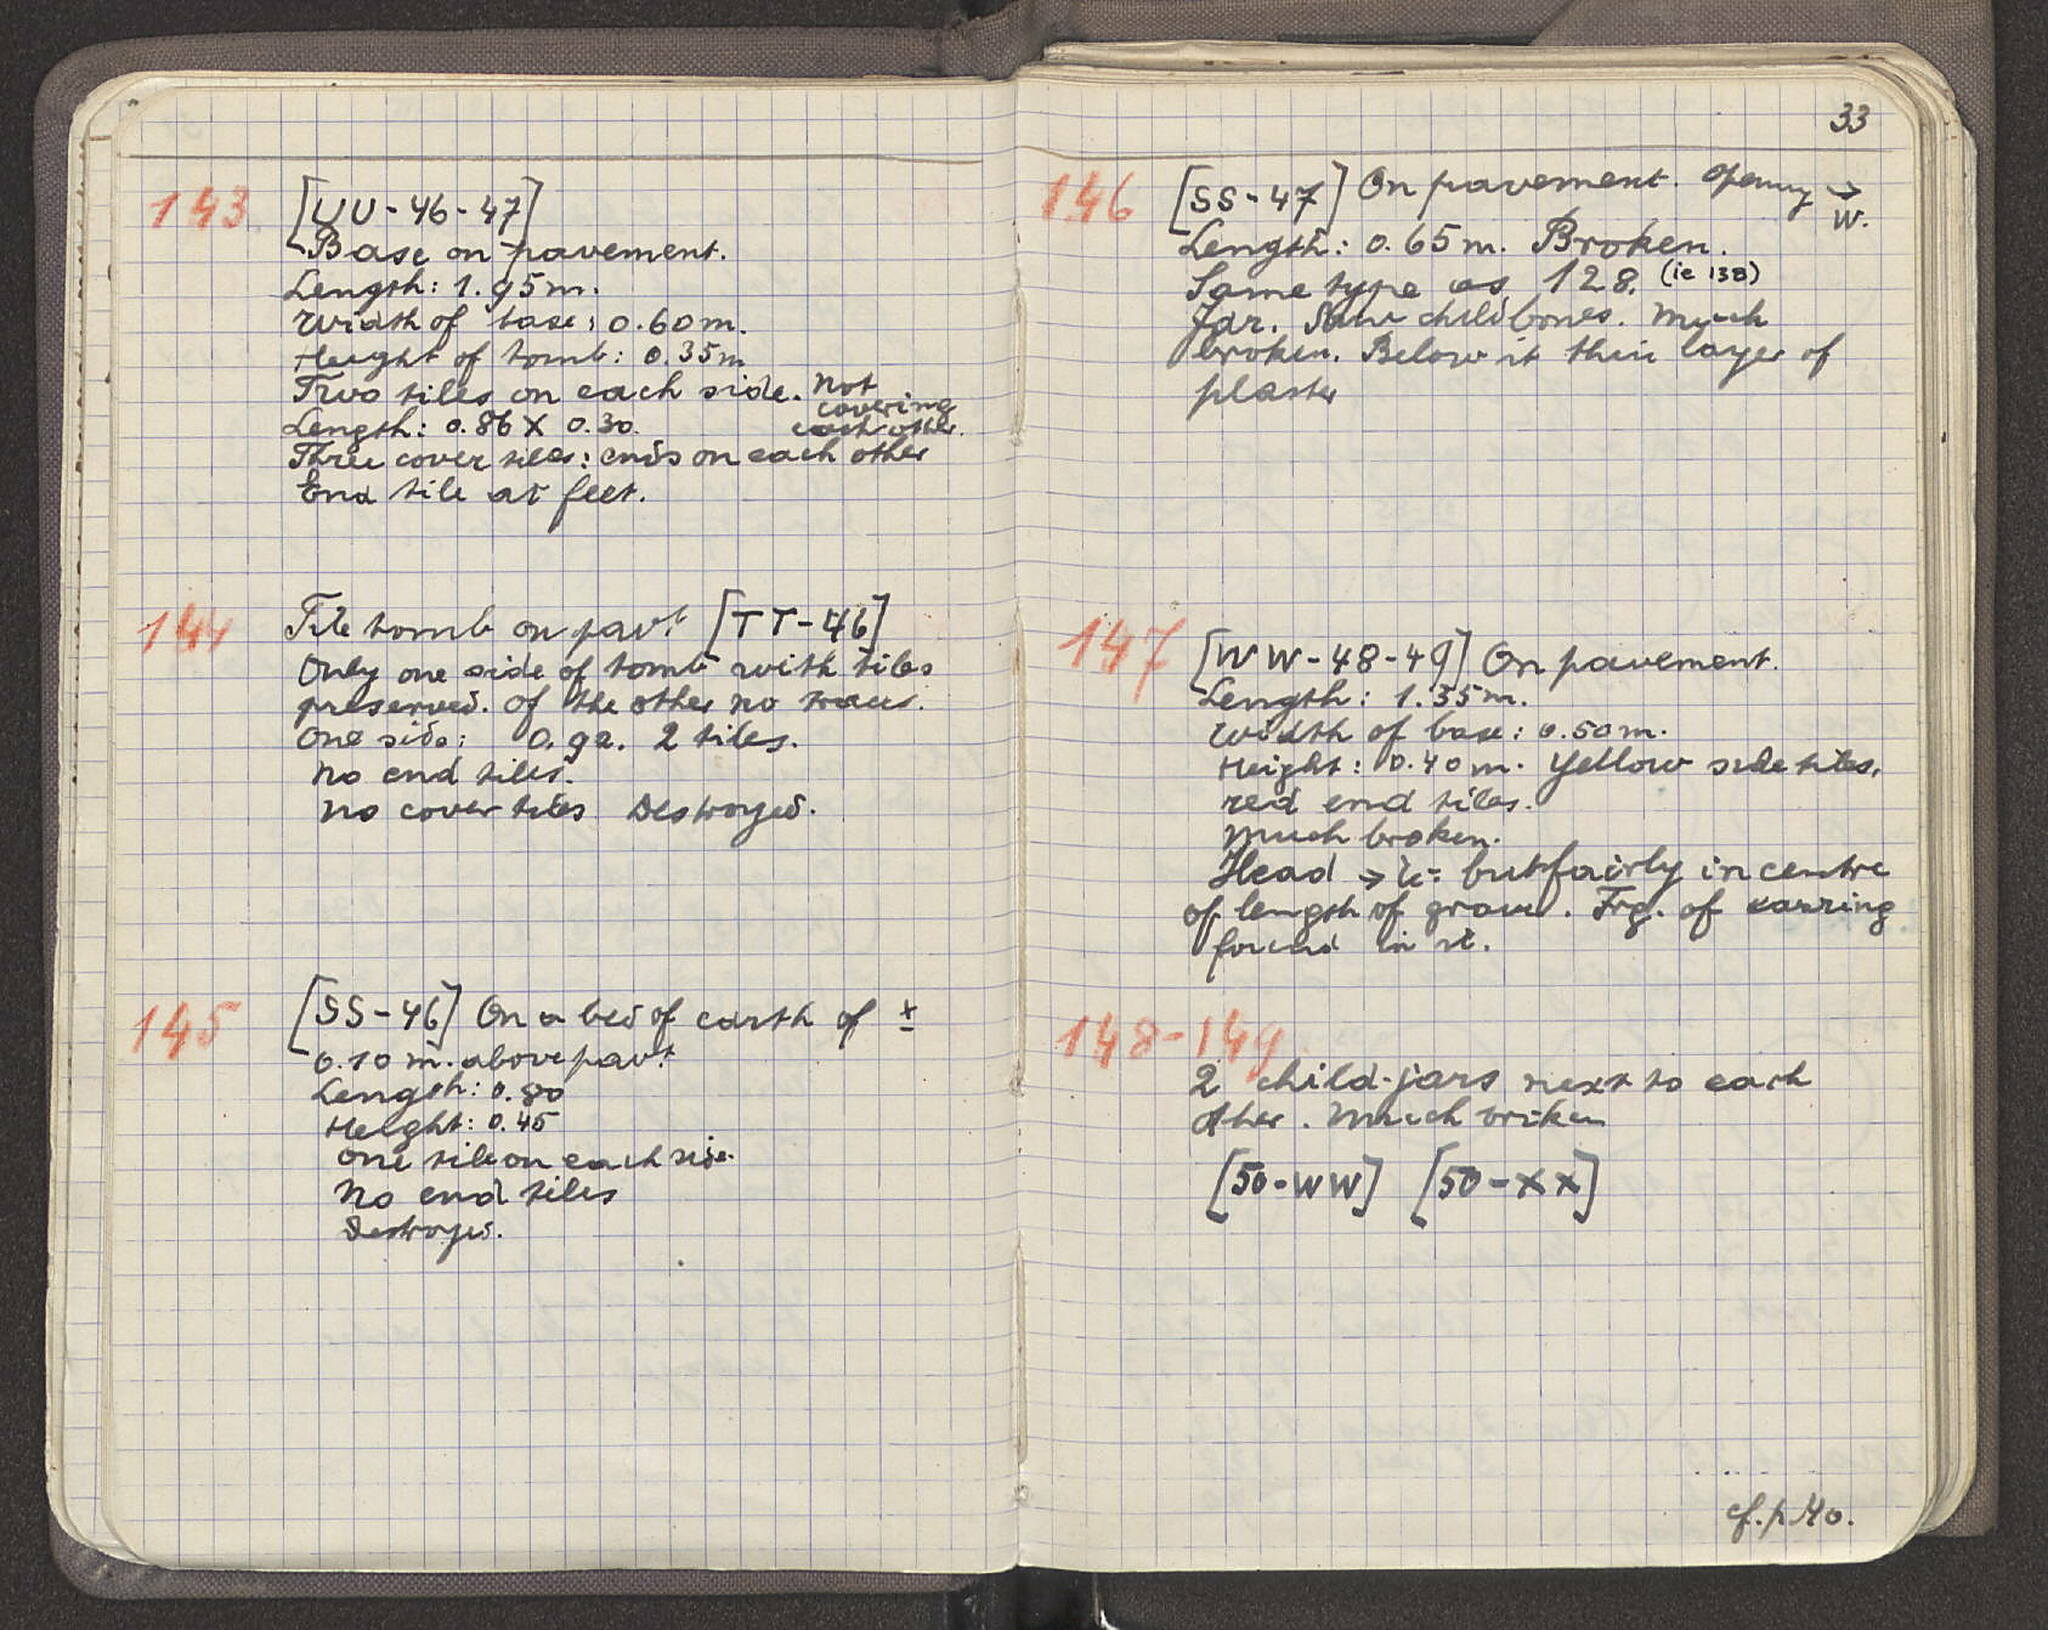 143 [UU-46-47]
Base on pavement.
Length: 1.95m.
Width of base: 0.60m.
Height of tomb: 0.35m
Two tiles on each side. Not
covering
each other.
Length: 0.86 X 0.30.
Three cover tiles: ends on each other
End tile at feet.
144 Tile tomb on pavt. [TT-46]
Only one side of tomb with tiles
preserved. Of the other no traces.
One side: 0.92. 2 tiles.
No end tiles.
No cover tiles Destroyed.
145 [SS-46] On a bed of earth of ±
0.10 m. above pavt.
Length: 0.80
Height: 0.45
One tile on each side.
No end tiles
Destroyed.
33
146 [SS-47] On pavement. Opening →
W.
Length: 0.65m. Broken.
Same type as 128. (ie 138)
Jar. Saw child bones. Much
broken. Below it thin layer of
plaster
147 [WW-48-49] On pavement.
Length: 1.35m.
Width of base: 0.50m.
Height: 0.40m. Yellow side tiles,
red end tiles.
Much broken.
Head → but fairly in centre
of length of grave. Frg. of earring
found in it.
148-149
2 child-jars next to each
other. Much broken
[50-WW] [50-XX]
cf. p 40.